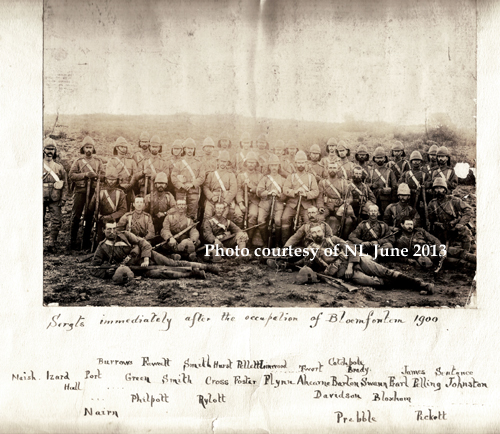 Photo courtesy of NL June 2013
Sergts immediately after the occupation of Bloemfontein 1900
Burrows Smith Hurst Pellett Catchpole
Naish Izard Port Green Smith Cross Foster Flynn Ahearne Barton Swann Earl Pelling Johnston
Twort Brady James Sentence
Hall
Philpott Rylott Davidson Bloxham
Nairn Prebble Pickett